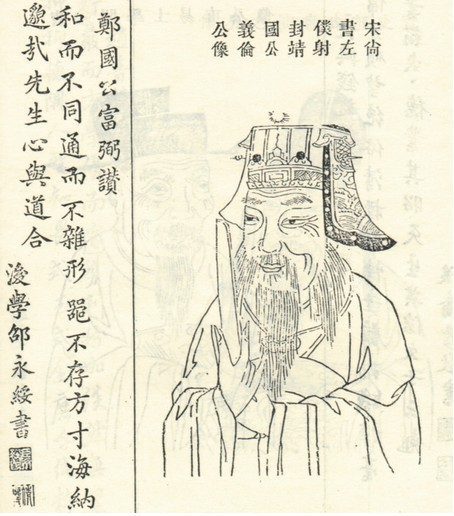 宋尚
書左
僕射
封靖
國公
義倫
公像
鄭國公富弼讚
和而不同通而不雜形噐不存方寸海納
邈哉先生心與道合
後學邵永綏書